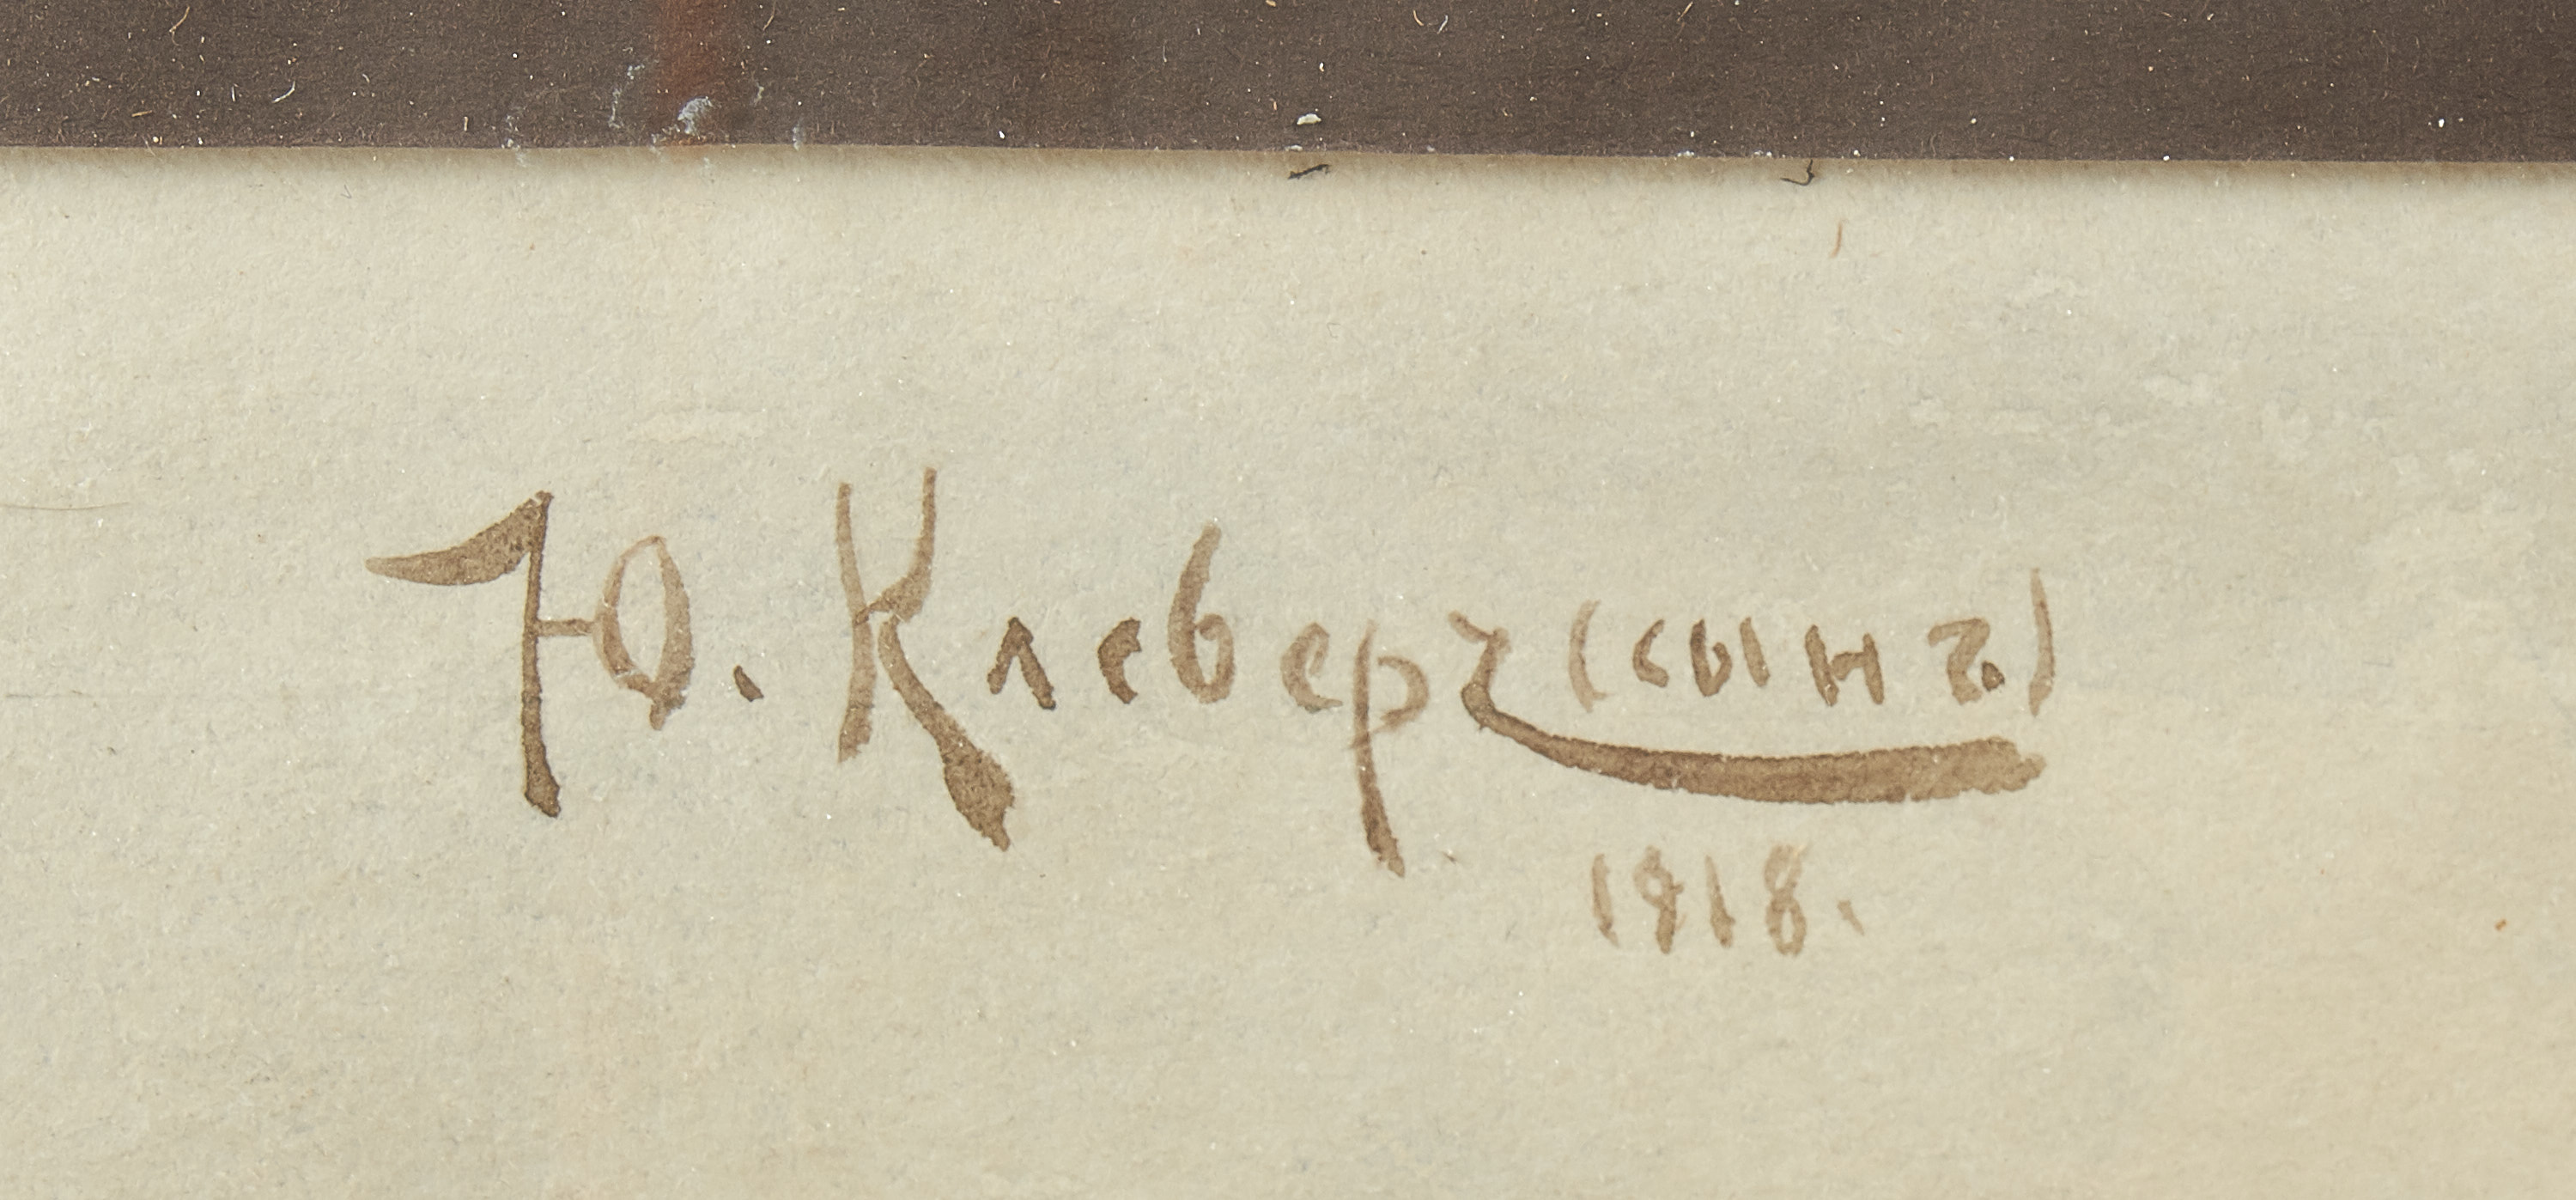 Ю. Клеверъ (сынъ)
1918.